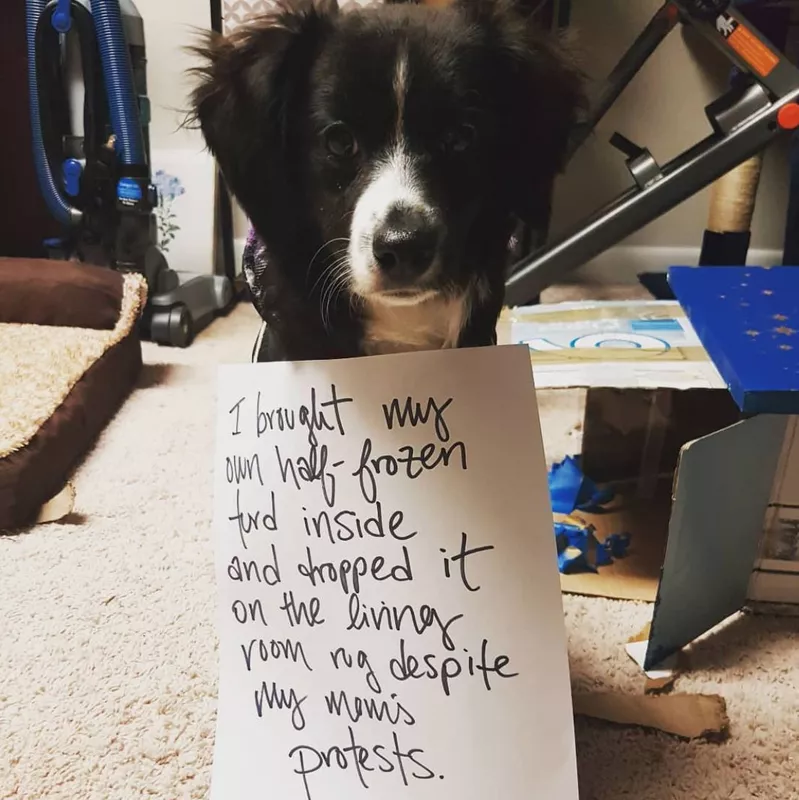 I brought my
own half-frozen
turd inside
and dropped it
on the living
room rug despite
my mom's
protests.